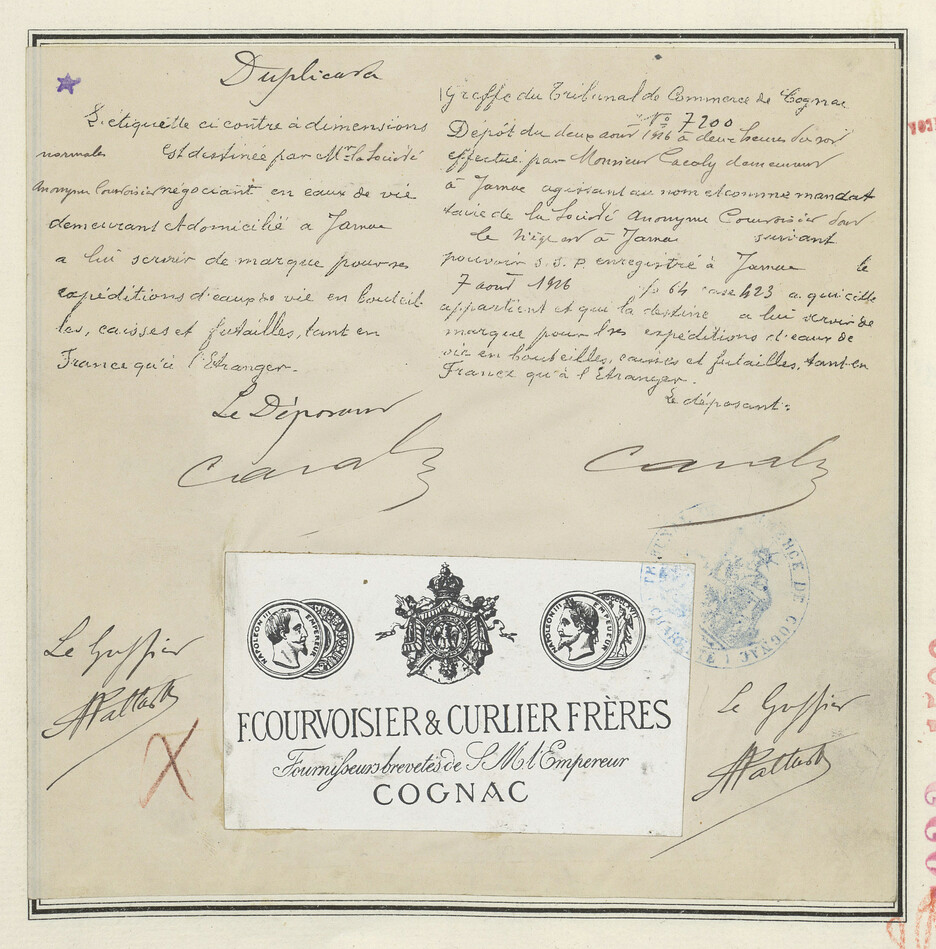 Duplicata
L'étiquette ci contre à dimensions
normales Est destinée par Mr la Société
Anonyme Courvoisier négociant en eaux de vie
demeurant et domicilié à Jarnac
a lui servir de marque pour ses
expéditions d'eaux de vie en bouteil-
les, caisses et futailles, tant en
France qu'à l'Etranger.
Le Déposant
Greffe du Tribunal de Commerce de Cognac
No 7200
Dépôt du deux aout 1916 à deux heures du soir
effectué par Monsieur demeurant
à Jarnac agissant au nom et comme mandat
taire de la Société Anonyme Courvoisier dont
le siège est à Jarnac suivant
pouvoir S.S.P. enregistré à Jarnac le
7 août 1916 fo 64 case 423 a qui elle
appartient et qui la destine a lui servir de
marque pour ses expéditions d'eaux de
vie en bouteilles, caisses et futailles, tant en
France qu'à l'Etranger.
Le déposant:
NAPOLEON III EMPEREUR
NAPOLEON III EMPEREUR
F. COURVOISIER & CURLIER FRÈRES
Fournisseurs brevetés de S.M. l'Empereur
COGNAC
Le Greffier
Le Greffier
X
COMMERCE DE COGNAC